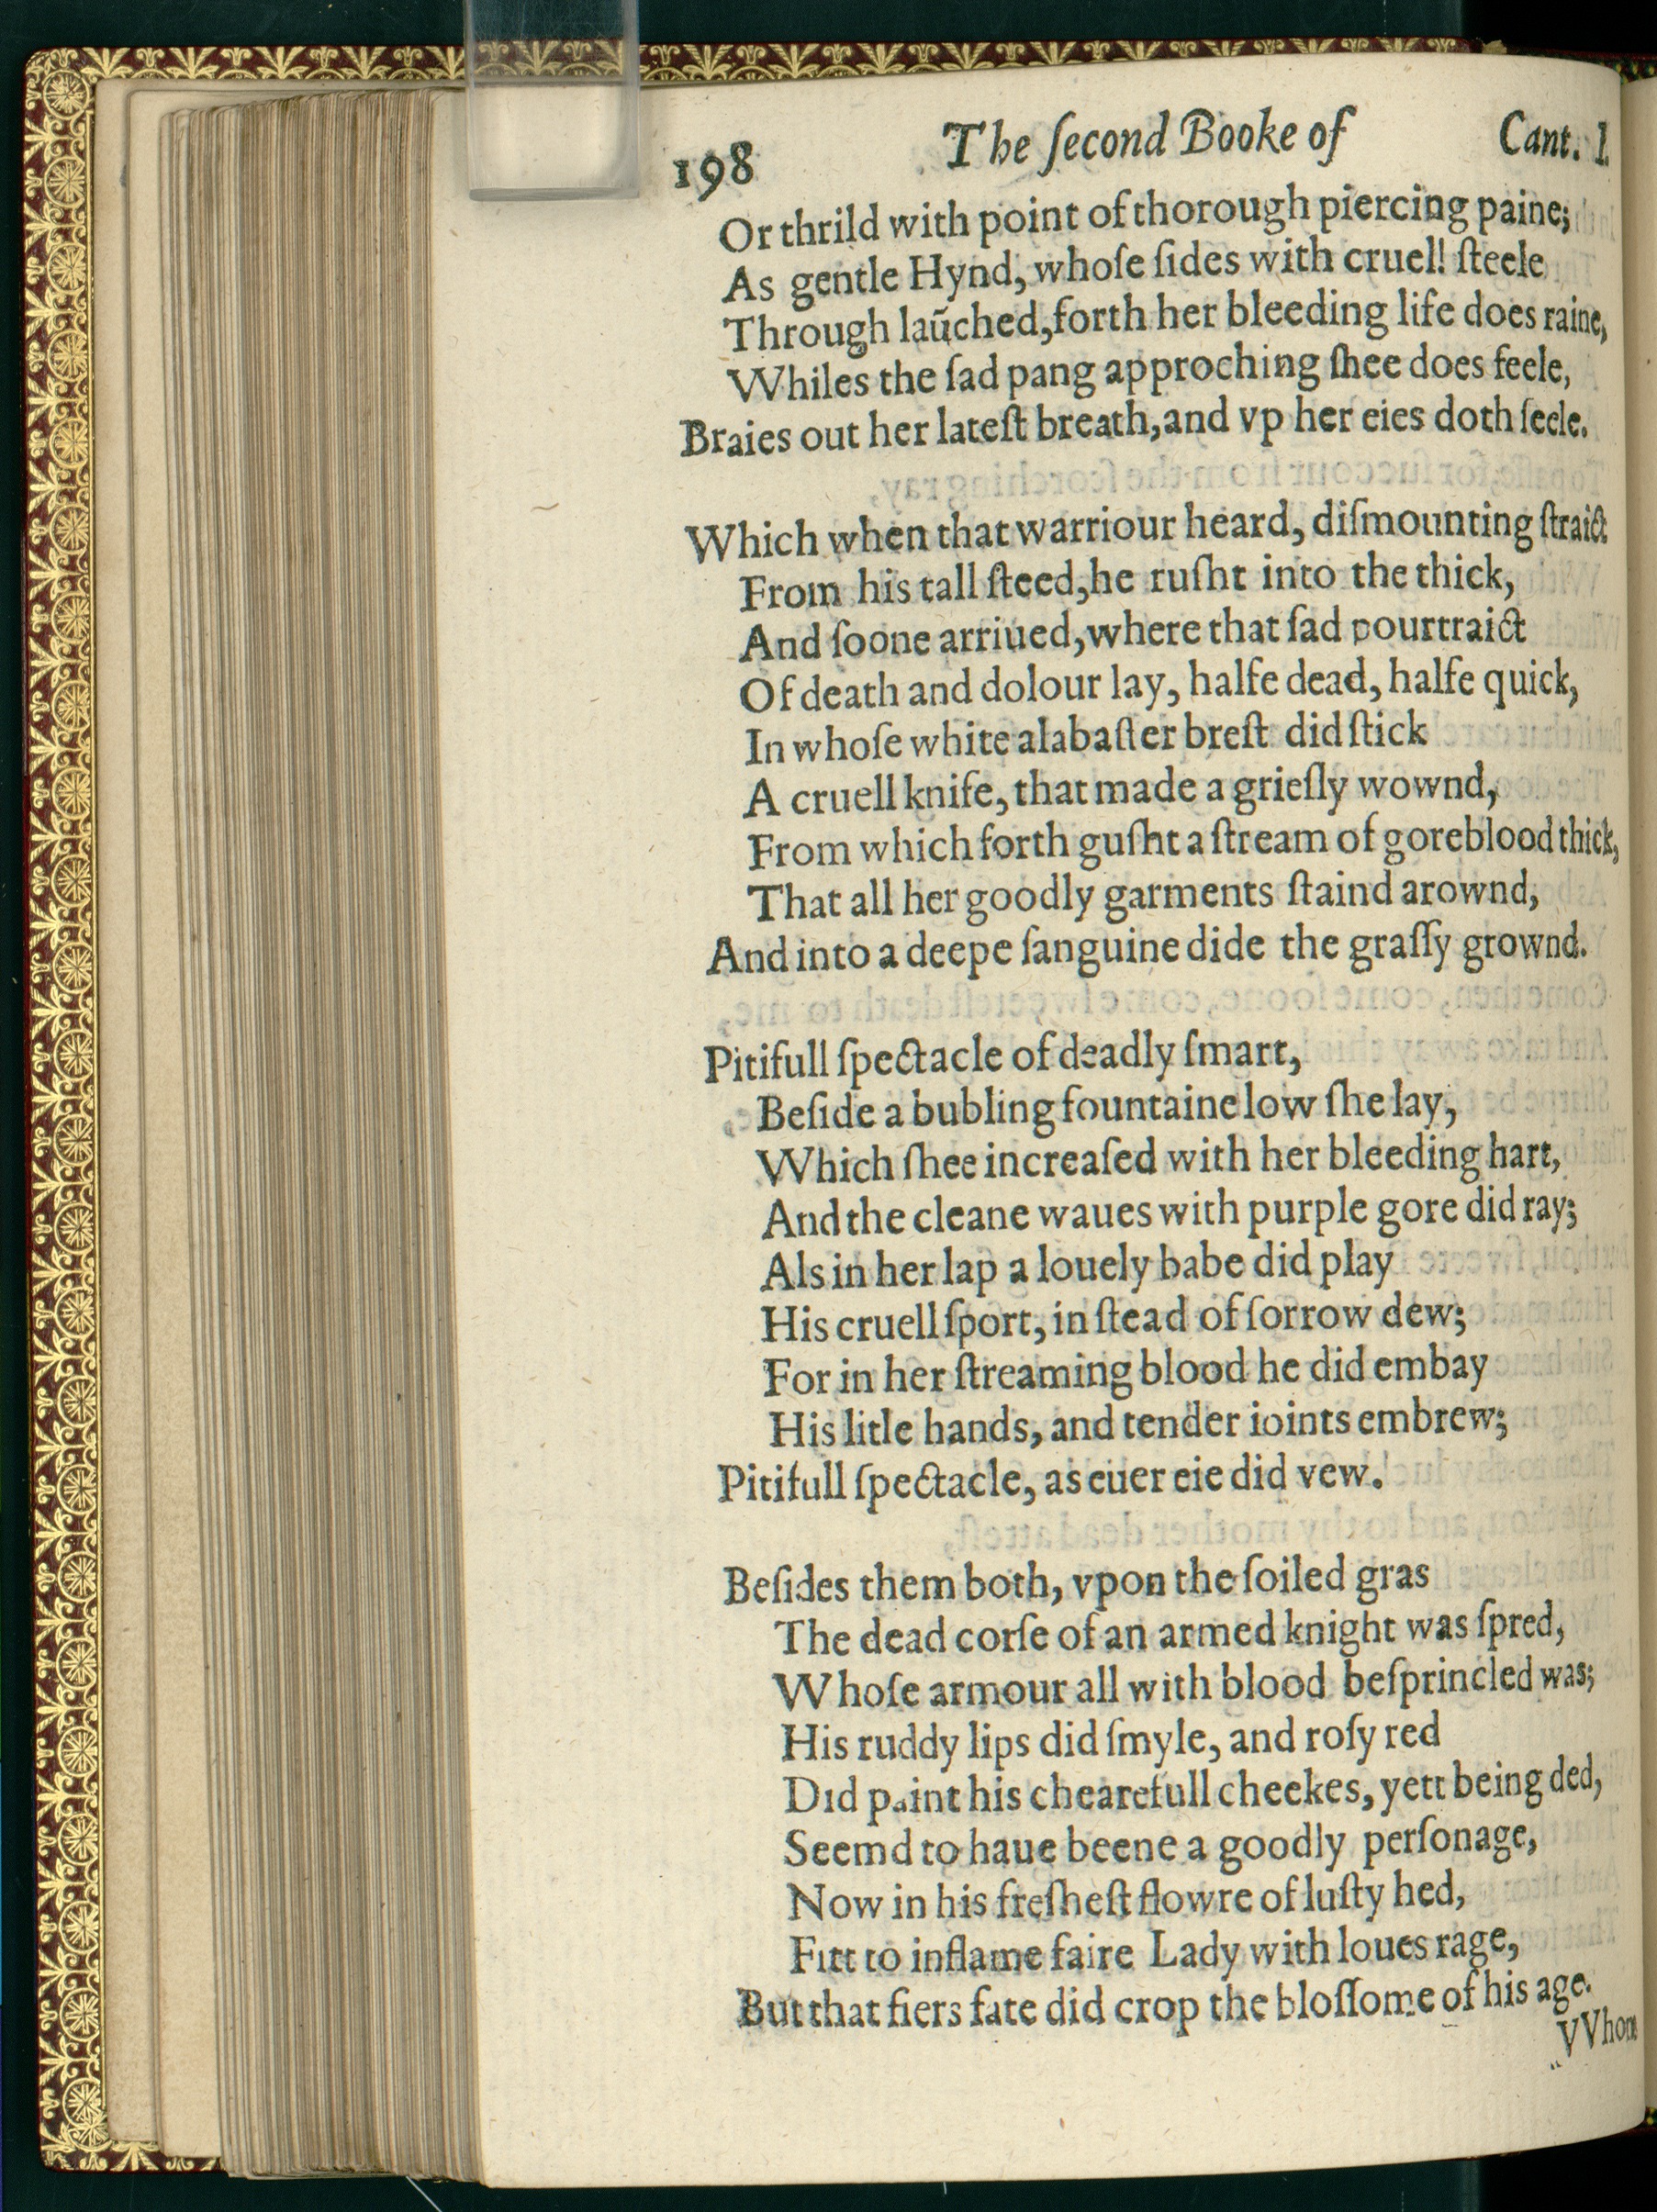 198 The ſecond Booke of Cant. I.
Or thrild with point of thorough piercing paine;
As gentle Hynd, whoſe ſides with cruell ſteele
Through laũched, forth her bleeding life does raine,
Whiles the ſad pang approching ſhee does feele,
Braies out her lateſt breath, and vp her eies doth ſeele.
Which when that warriour heard, diſmounting ſtraict
From his tall ſteed, he ruſht into the thick,
And ſoone arriued, where that ſad pourtraict
Of death and dolour lay, halfe dead, halfe quick,
In whoſe white alabaſter breſt did ſtick
A cruell knife, that made a grieſly wownd,
From which forth guſht a ſtream of goreblood thick,
That all her goodly garments ſtaind arownd,
And into a deepe ſanguine dide the graſſy grownd.
Pitifull ſpectacle of deadly ſmart,
Beſide a bubling fountaine low ſhe lay,
Which ſhee increaſed with her bleeding hart,
And the cleane waues with purple gore did ray;
Als in her lap a louely babe did play
His cruell ſport, in ſtead of ſorrow dew;
For in her ſtreaming blood he did embay
His litle hands, and tender ioints embrew;
Pitifull ſpectacle, as euer eie did vew.
Beſides them both, vpon the ſoiled gras
The dead corſe of an armed knight was ſpred,
Whoſe armour all with blood beſprincled was;
His ruddy lips did ſmyle, and roſy red
Did paint his chearefull cheekes, yett being ded,
Seemd to haue beene a goodly perſonage,
Now in his freſheſt flowre of luſty hed,
Fitt to inflame faire Lady with loues rage,
But that fiers fate did crop the bloſſome of his age.
VVhom